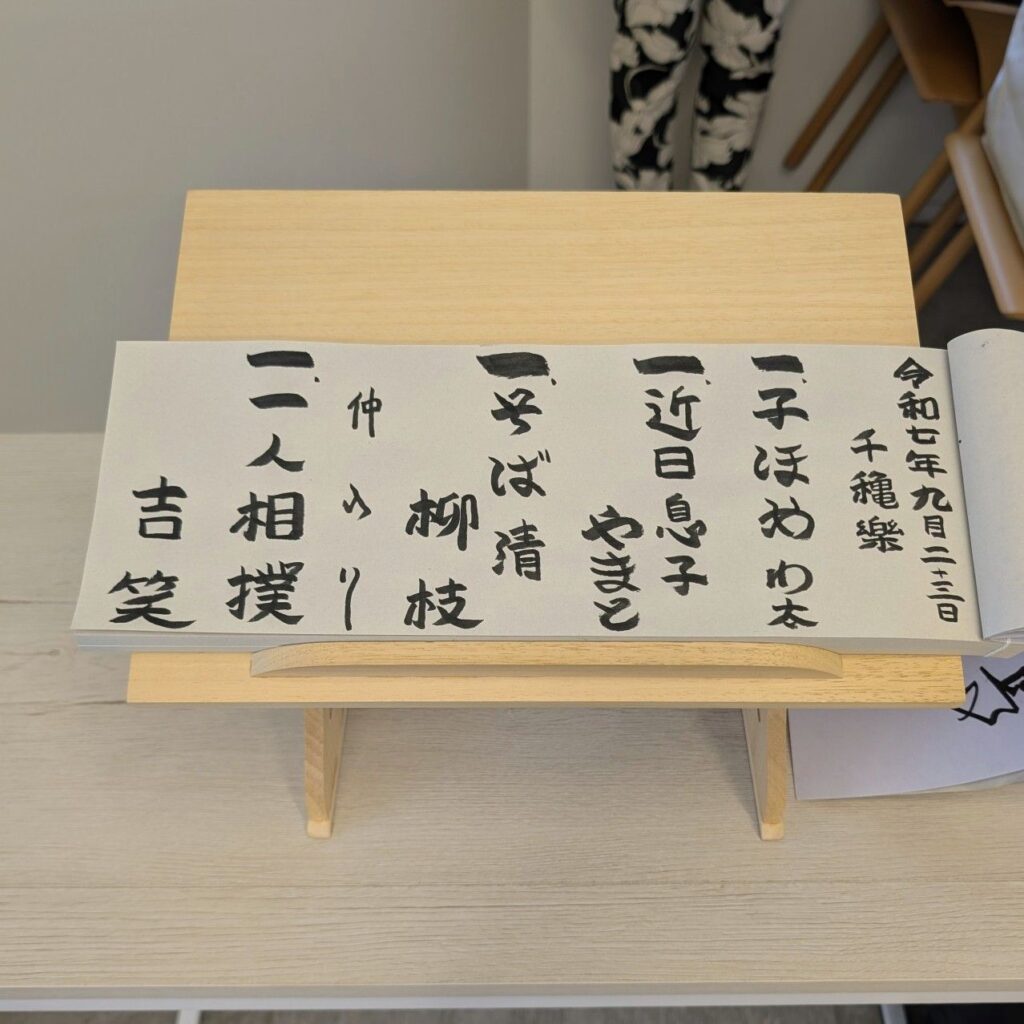 令和七年九月二十三日
千穐樂
一、子ほめ わ太
一、近日息子
やまと
一、そば清
柳枝
仲入り
一、一人相撲
吉笑